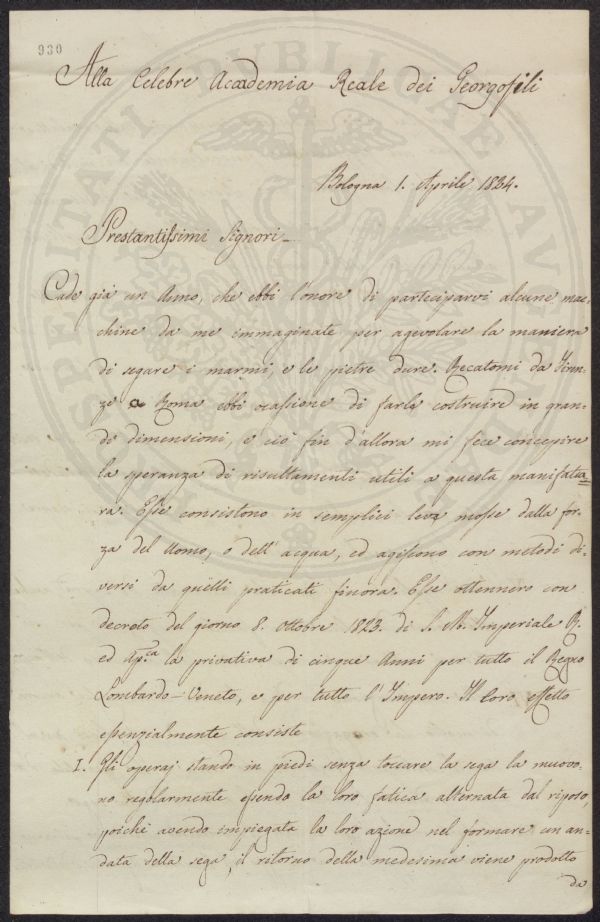 930
Alla Celebre Accademia Reale dei Georgofili
Bologna 1. Aprile 1824.
Prestantissimi Signori_
Cade già un Anno, che ebbi l'onore di parteciparvi alcune mac-
chine da me immaginate per agevolare la maniera
di segare i marmi, e le pietre dure. Recatomi da Firen-
ze a Roma ebbi ocassione di farle costruire in gran-
de dimensioni, e ciò fin d'allora mi fece concepire
la speranza di risultamenti utili a questa manifattu=
ra. Esse consistono in semplici leva mosse dalla for-
za del Uomo, o dell'acqua, ed agiscono con metodi di-
versi da quelli praticati finora. Esse ottennero con
decreto del giorno 8. Ottobre 1823. di S. M. Imperiale R.
ed Ap.ca la privativa di cinque Anni per tutto il Regno
Lombardo-Veneto, e per tutto l'Impero. Il loro effetto
essenzialmente consiste
I. Gli operaj stando in piedi senza toccare la sega la muovo-
no regolarmente essendo la loro fatica alternata dal riposo,
poichè avendo impiegata la loro azione nel formare un an-
data della sega, il ritorno della medesima viene prodotto
da
PUBLICAE